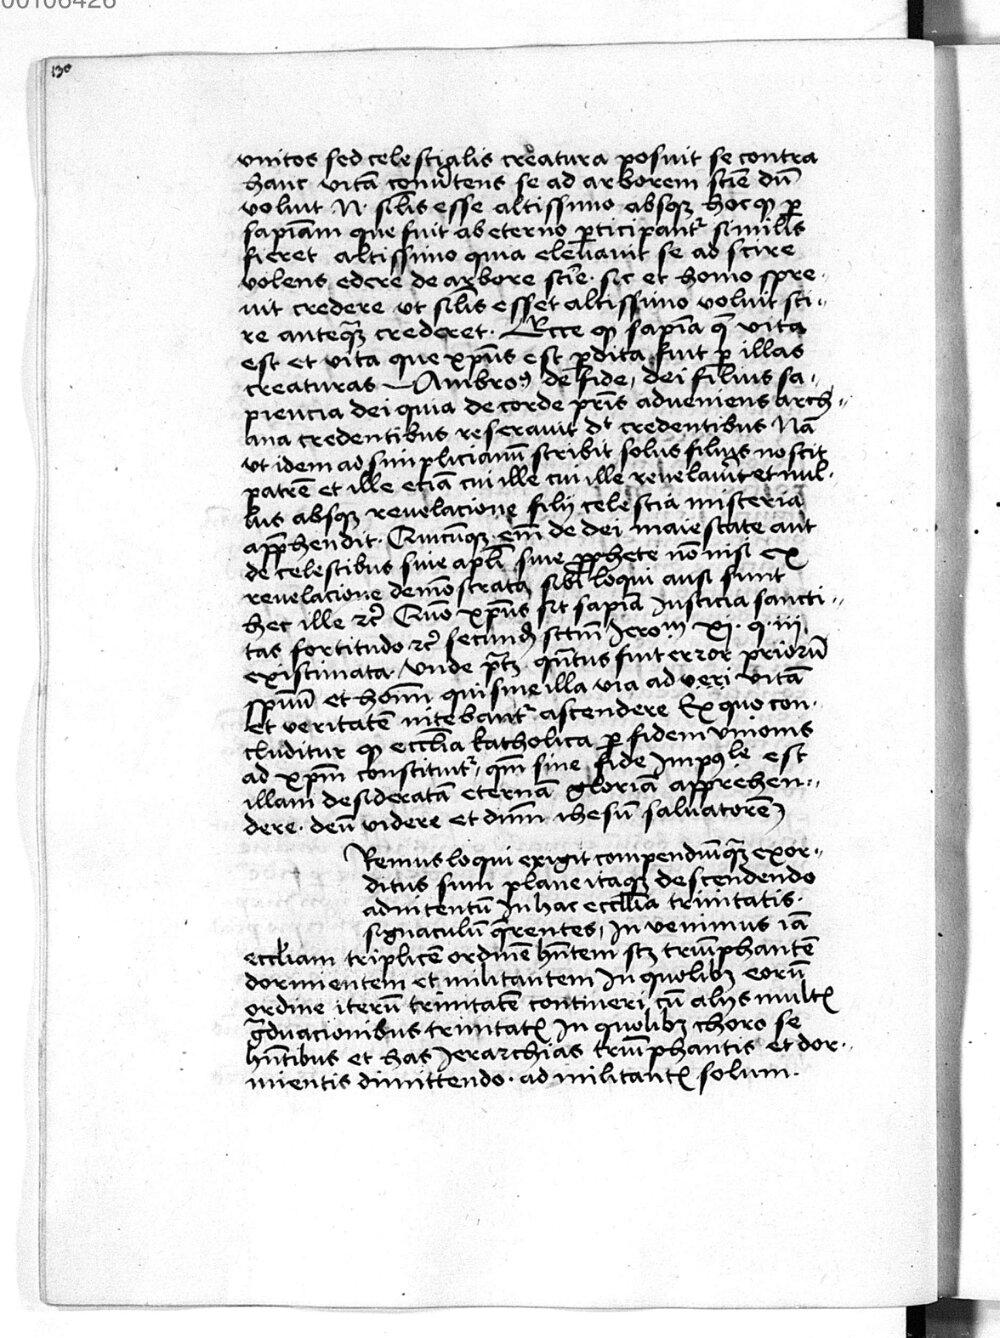 00106426
130
vnitos sed celestialis creatura posuit se contra
hanc vitā conũtens se ad arborem sciē dū
voluit N silis esse altissimo absqz hoc qꝫ ꝑ
sapiam que fuit ab eterno ꝑticipant᷑ similis
fieret altissimo quia eleuauit se ad scire
volens edere de arbore scīe · sic et homo spre⸗
uit credere vt silis esset altissimo voluit sci⸗
re anteqꝫ crederet · Ecce qꝫ sapia q̄ vita
est et vita que xp̄us est ꝑdita fuit ꝑ illas
creaturas Ambroꝰ de fide, dei filius sa⸗
piencia dei quia de corde pr̄is adueniens arch⸗
ana credentibus reserauit dt credentibus Nā
vt idem ad simplicianū scribit solus filius noscit
patrē et ille etiā cui ille cui ille reuelaũit et nul⸗
lus absqz reuelacione filij celestia misteria
apꝑhendit · Quicūqz em̄ de dei maiestate aut
de celestibus siue apli siue ꝓphete nō nisi ex
reuelacione demōstrata sibi loqui ausi sunt
hec ille rc̄ Quō xp̄us sit sapia Iusticia sancti⸗
tas fortitudo rc̄ secundꝫ sctm̄ Jeroᵐ xj · q · iij
existimata vnde ptꝫ qn̄tus fuit error priorū
spūū et hoīm qui siue illa via ad veri vitā
et veritatē nitebant᷑ ascendere Ex quo con⸗
cluditur qꝫ ecclia katholica ꝑ fidem vnionis
ad xp̄m constituit᷑, qm̄ sine fide Impoˡe est
illam desideratā eternā gloriā apprehen⸗
dere · deū videre et dn̄m ihesū saluatorē
Remus loqui exigit compendiūqꝫ exor⸗
ditus sum plane itaqꝫ descendendo
ad intentū In hac ecclia trinitatis ·
signaculū q̄rentes, In venimus iā
eccliam triplicē ordinē hn̄tem scꝫ triūphantē
dormientem et militantem In quolibꝫ eorū
ordine iterū trinitatē contineri cū alijs multꝭ
g̃duacionibus trinitatꝭ In quolibꝫ choro se
hn̄tibus et has Jerarchias triūphantis et dor⸗
mientis dimittendo · ad militantꝭ solum ·